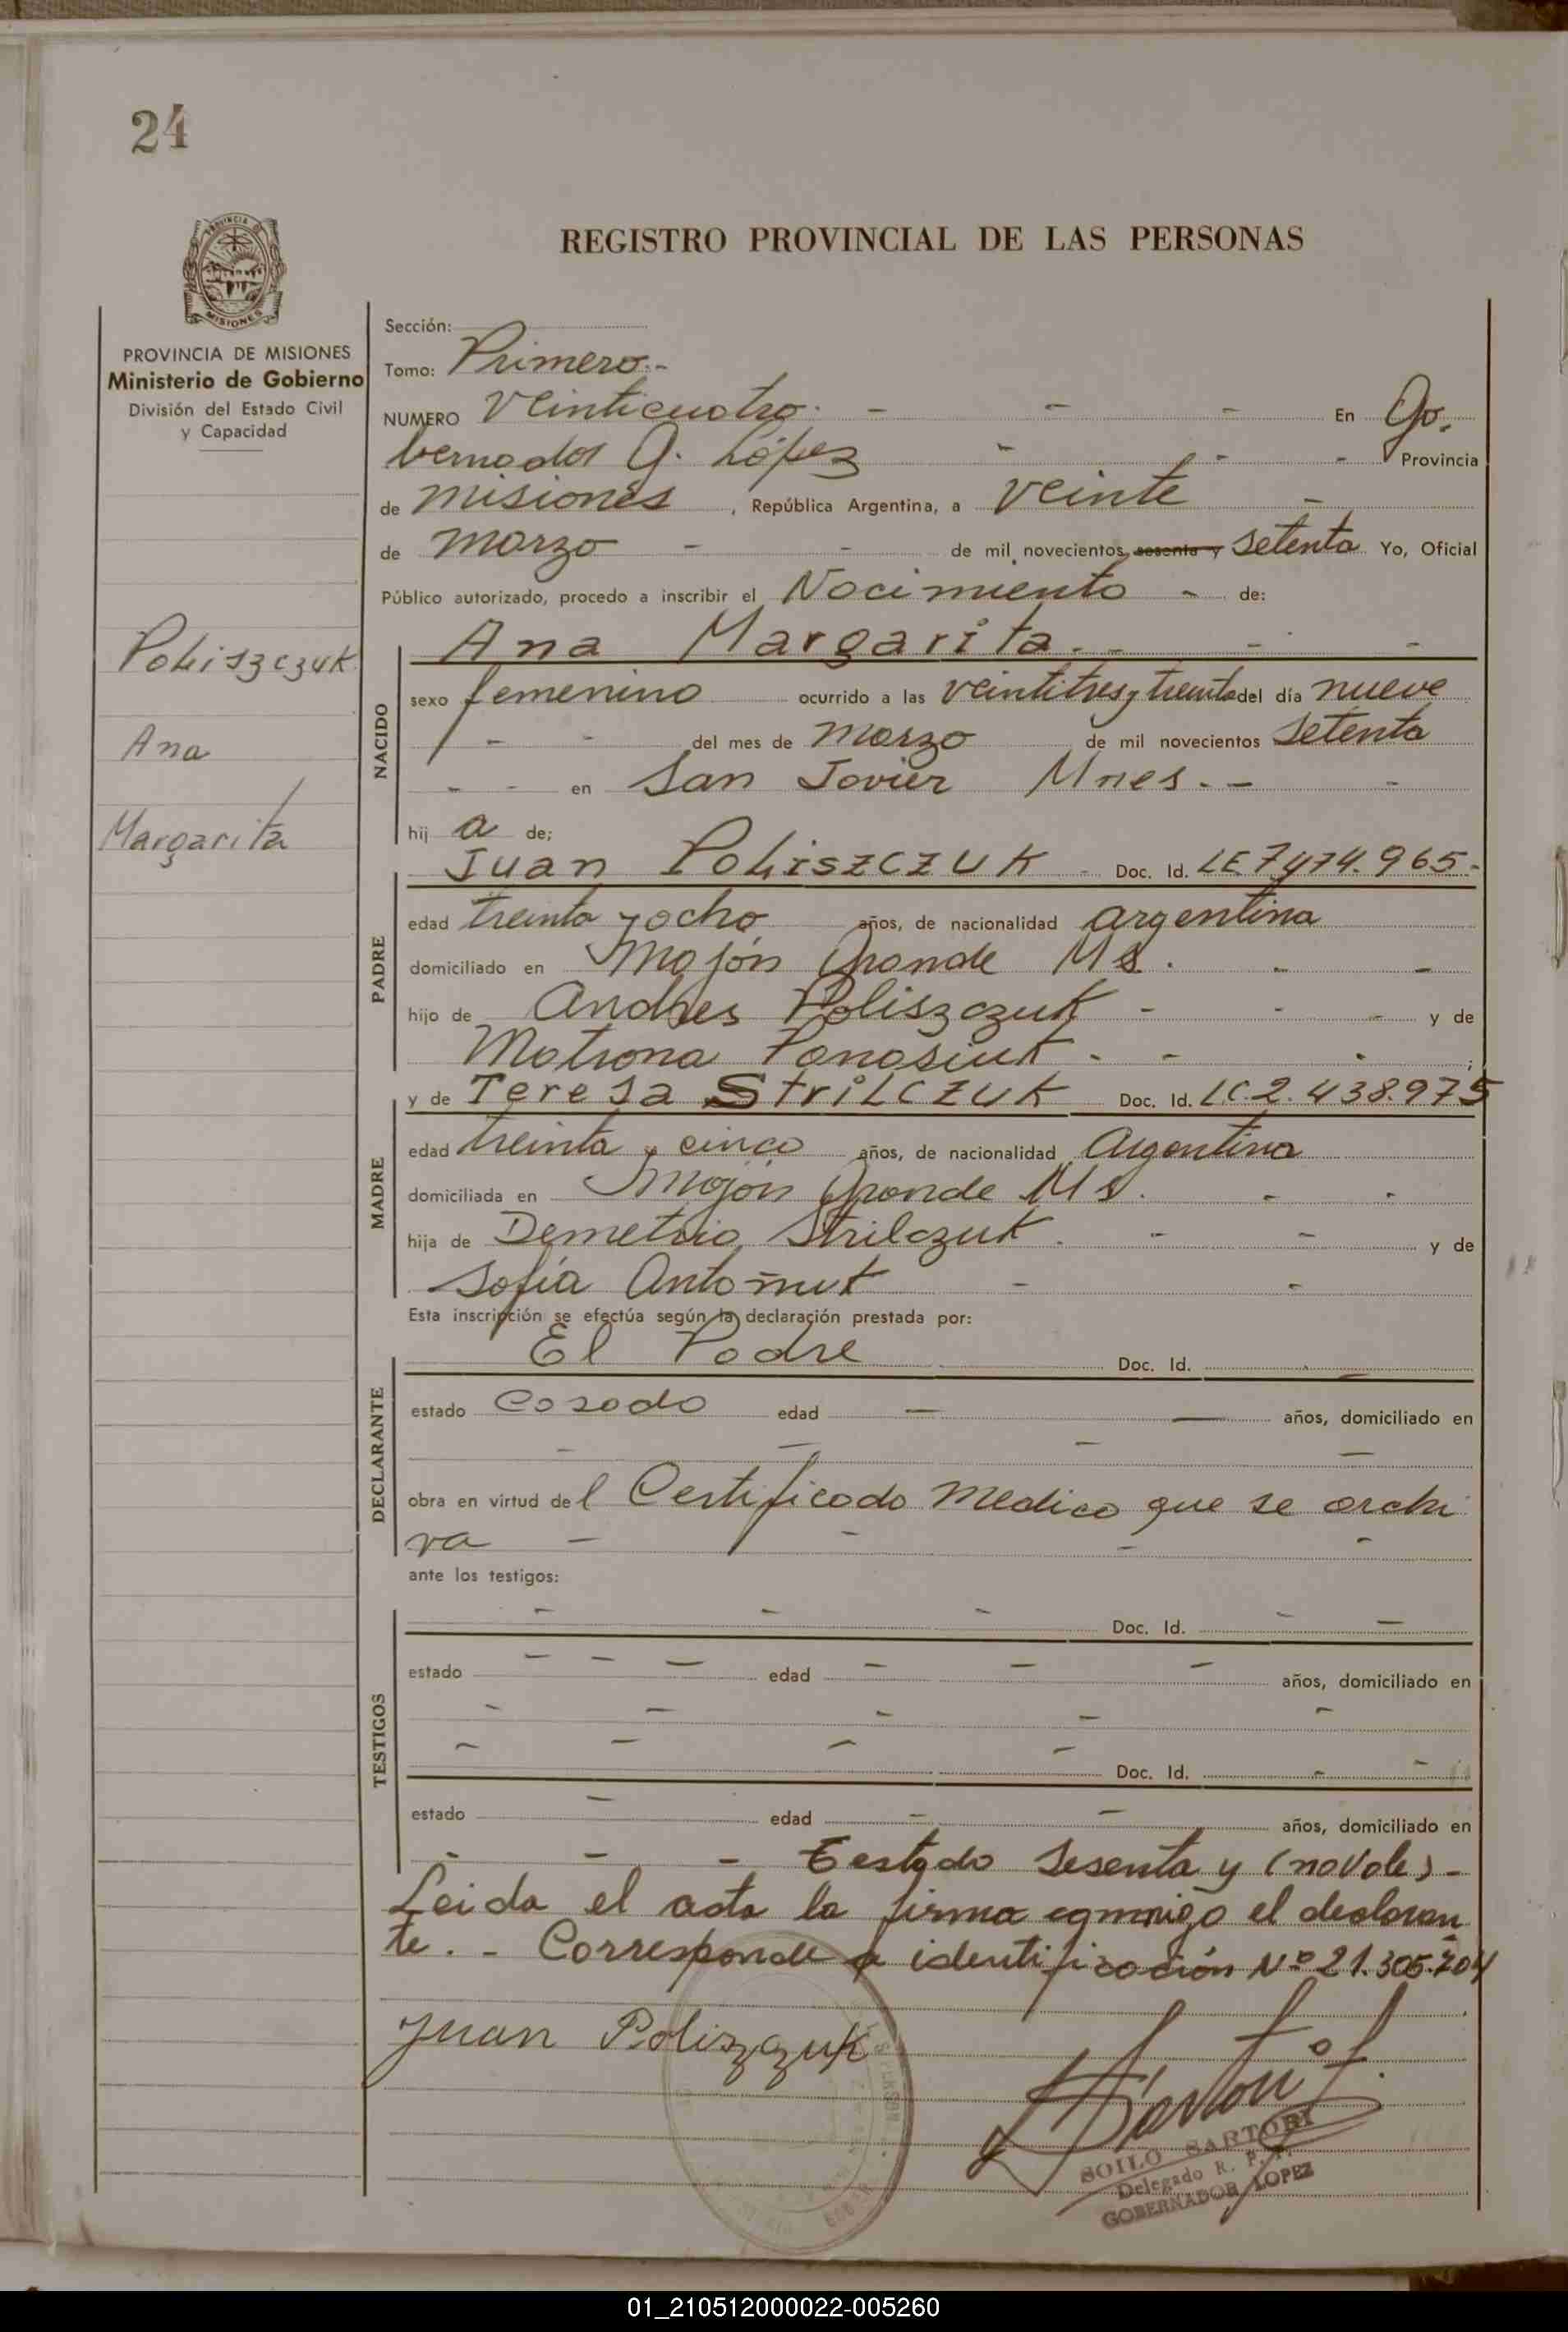 24
REGISTRO PROVINCIAL DE LAS PERSONAS
PROVINCIA DE MISIONES
Ministerio de Gobierno
División del Estado Civil
y Capacidad
Poliszczuk
Ana
Margarita
Sección:
Tomo: Primero.-
NUMERO Veinticuatro. - - - En Go-
bernador G. López - - - Provincia
de Misiones, República Argentina, a veinte -
de Marzo - - de mil novecientos sesenta y setenta Yo, Oficial
Público autorizado, procedo a inscribir el Nacimiento - de:
NACIDO
Ana Margarita.- - -
sexo femenino ocurrido a las veintitres y treinta del día nueve
- - del mes de Marzo de mil novecientos setenta
- - en San Javier Mnes.- - -
hij a de;
PADRE
Juan Poliszczuk - Doc. Id. LE 7.474.965-
edad treinta y ocho años, de nacionalidad argentina
domiciliado en Mojón Grande Ms. - -
hijo de Andres Poliszczuk - - - y de
Motrona Panasiuk - - - ;
MADRE
y de Teresa Strilczuk Doc. Id. LC.2.438.975
edad treinta y cinco años, de nacionalidad Argentina
domiciliada en Mojón Grande Ms. - -
hija de Demetrio Strilczuk. - - y de
Sofía - -
Esta inscripción se efectúa según la declaración prestada por:
DECLARANTE
El Padre Doc. Id. -
estado Casado edad - - años, domiciliado en
- - - -
obra en virtud del Certificado Medico que se archi
va - - - -
ante los testigos:
TESTIGOS
- - - Doc. Id. - -
estado - - - edad - - - años, domiciliado en
- - - - -
- - - - Doc. Id. - -
estado - edad - - años, domiciliado en
- - - Testado Sesenta y (no vale)-
Leida el acta la firma conmigo el declaran
te.- Corresponde a identificación Nº 21.305.204
Juan Poliszczuk
SOILO SARTORI
Delegado R. P. P.
GOBERNADOR LOPEZ
01_210512000022-005260